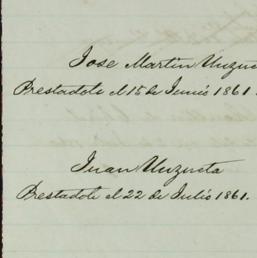 Jose Martin Unzue
Prestadote el 15 de Junio 1861.
Juan Unzueta
Prestadote el 22 de Julio 1861.